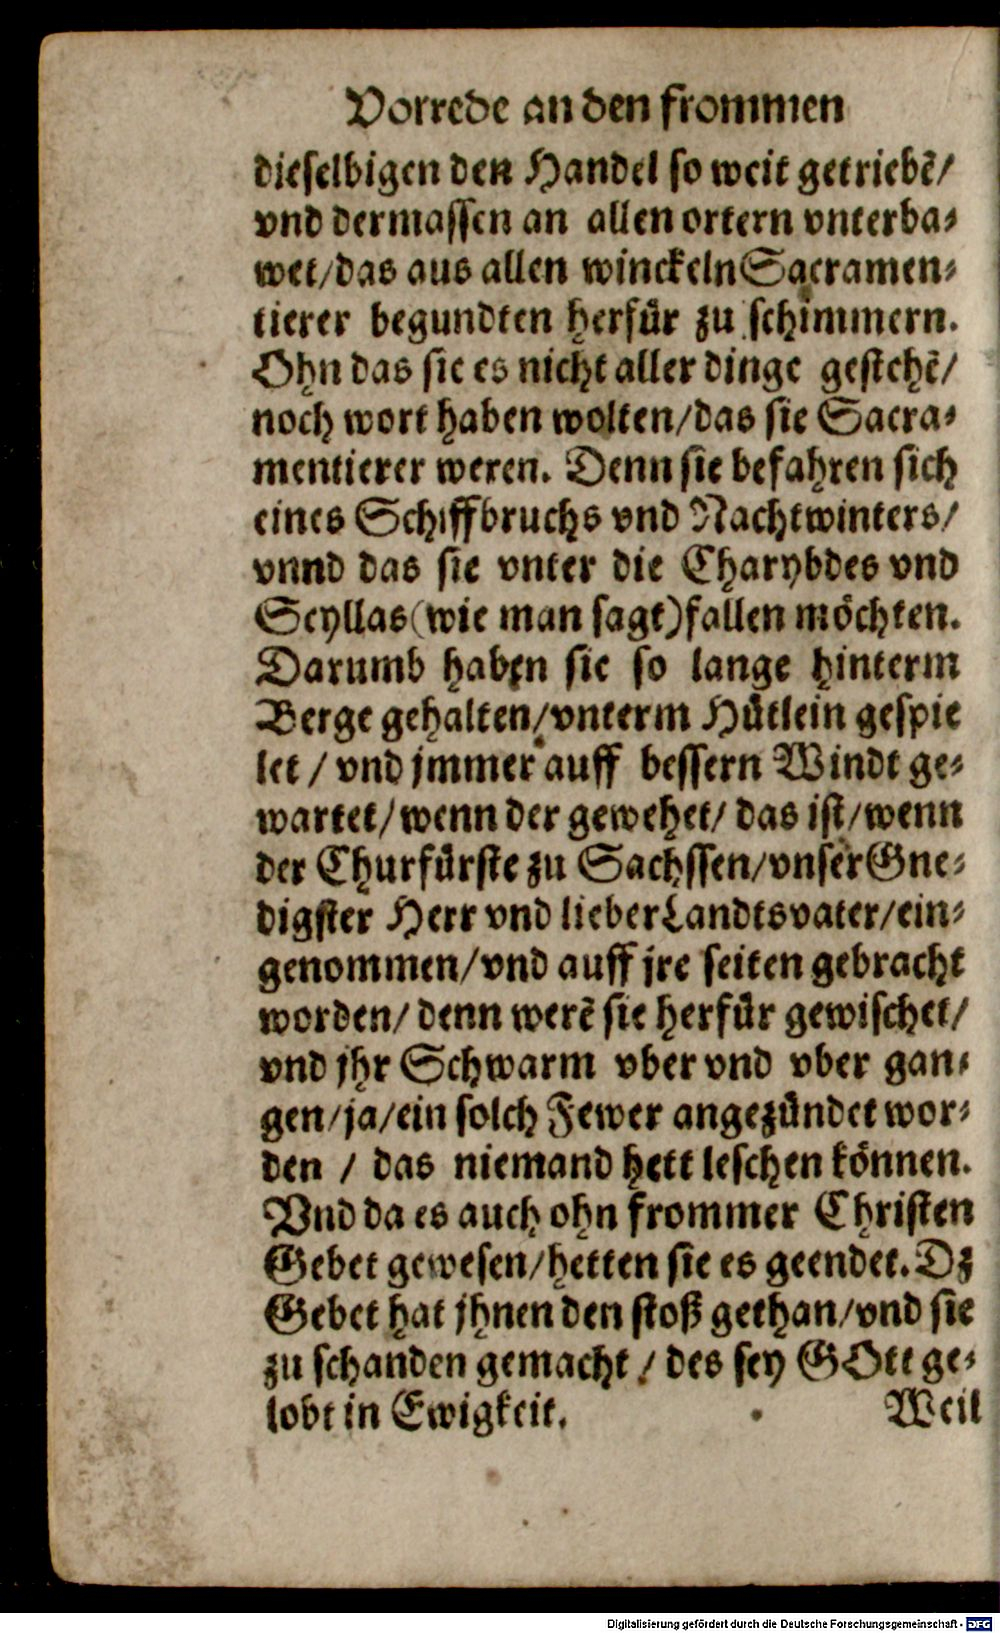 Vorrede an den frommen
dieselbigen den Handel so weit getriebẽ/
vnd dermassen an allen ortern vnterba⸗
wet/das aus allen winckeln Sacramen⸗
tierer begundten herfür zu schimmern.
Ohn das sie es nicht aller dinge gestehẽ/
noch wort haben wolten/das sie Sacra⸗
mentierer weren. Denn sie befahren sich
eines Schiffbruchs vnd Nachtwinters/
vnnd das sie vnter die Charybdes vnd
Scyllas (wie man sagt) fallen möchten.
Darumb haben sie so lange hinterm
Berge gehalten/vnterm Hütlein gespie
let / vnd jmmer auff bessern Windt ge⸗
wartet/wenn der gewehet/ das ist/wenn
der Churfürste zu Sachssen/vnser Gne⸗
digster Herr vnd lieber Landtsvater/ein⸗
genommen/vnd auff jre seiten gebracht
worden/ denn werẽ sie herfür gewischet/
vnd jhr Schwarm vber vnd vber gan⸗
gen/ja/ein solch Fewer angezündet wor⸗
den / das niemand hett leschen können.
Vnd da es auch ohn frommer Christen
Gebet gewesen/hetten sie es geendet. Dz
Gebet hat jhnen den stoß gethan/vnd sie
zu schanden gemacht / des sey GOtt ge⸗
lobt in Ewigkeit. Weil
Digitalisierung gefördert durch die Deutsche Forschungsgemeinschaft - DFG